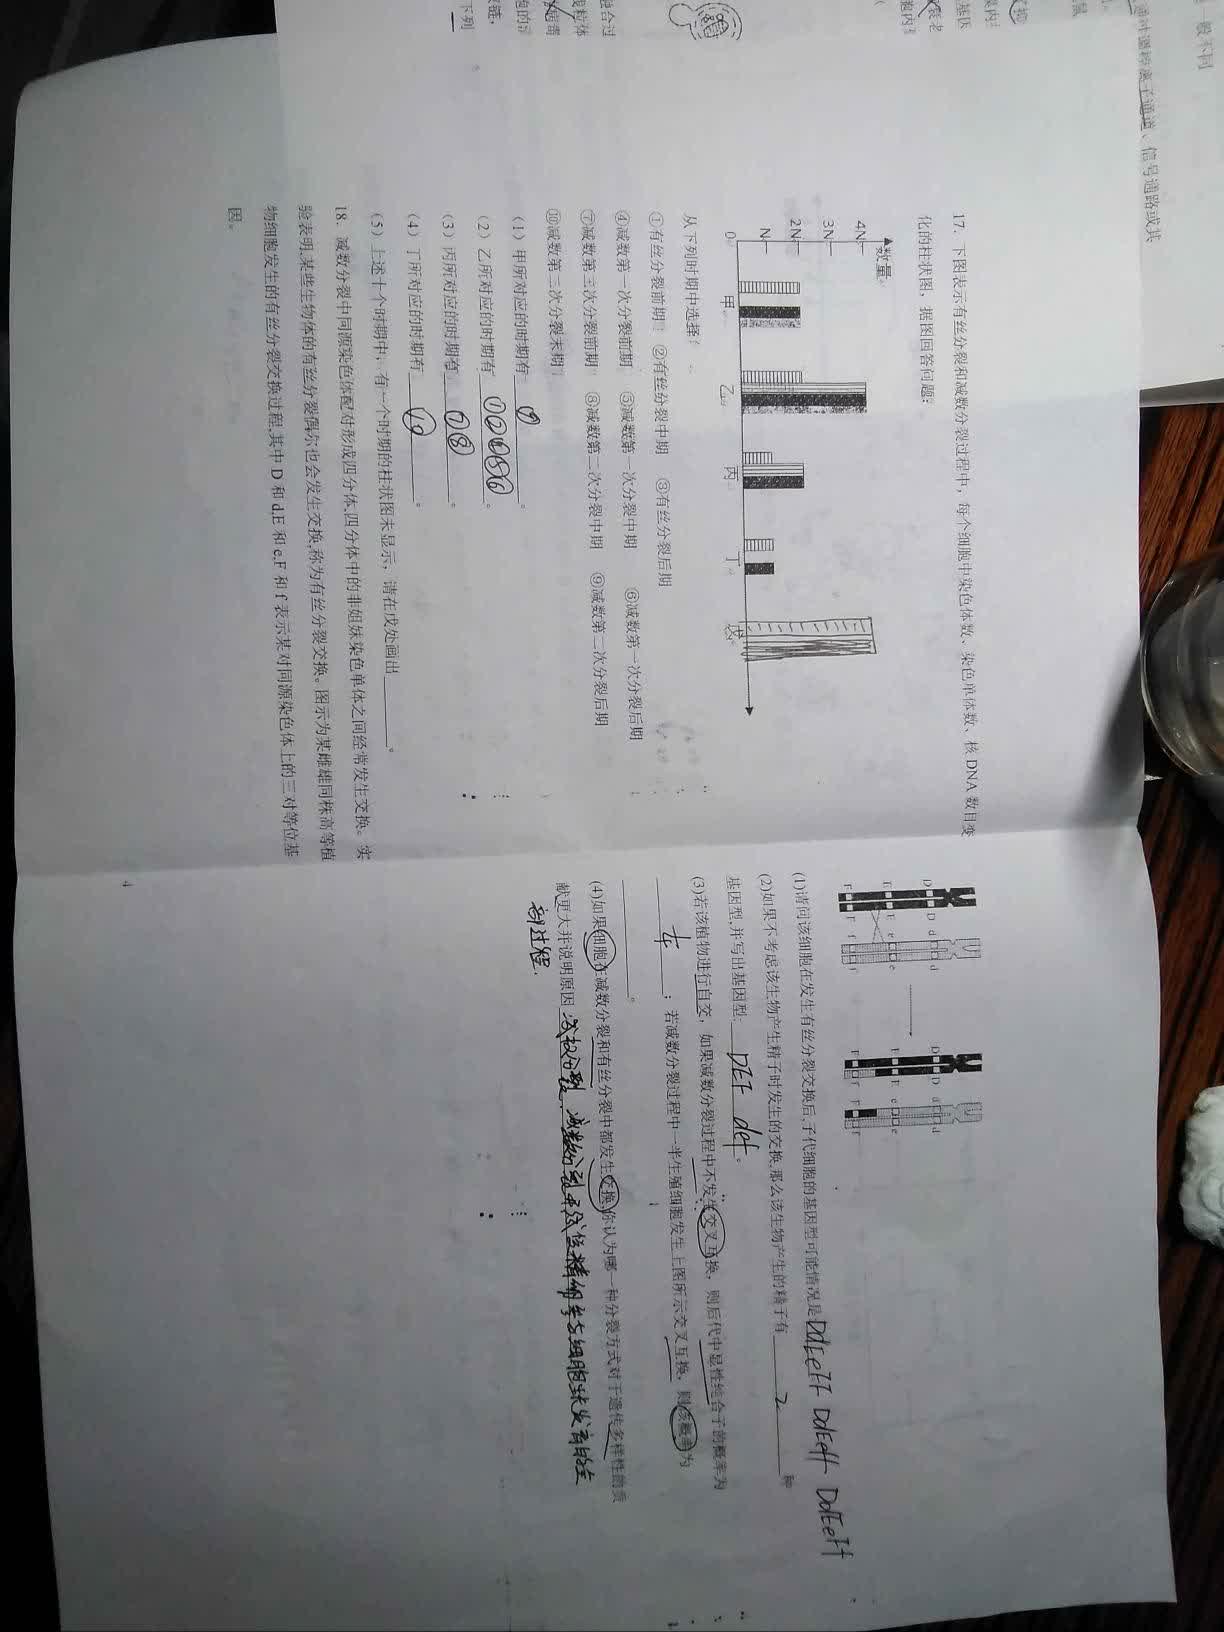 17. 下图表示有丝分裂和减数分裂过程中，每个细胞中染色体数、染色单体数、核 DNA 数目变
化的柱状图，据图回答问题：
数量
4N
3N
2N
N
0
甲 乙 丙 丁 戊
从下列时期中选择：
①有丝分裂前期 ②有丝分裂中期 ③有丝分裂后期
④减数第一次分裂前期 ⑤减数第一次分裂中期 ⑥减数第一次分裂后期
⑦减数第二次分裂前期 ⑧减数第二次分裂中期 ⑨减数第二次分裂后期
⑩减数第二次分裂末期
（1）甲所对应的时期有 ⑨ 。
（2）乙所对应的时期有 ①②④⑤⑥ 。
（3）丙所对应的时期有 ⑦⑧ 。
（4）丁所对应的时期有 ⑩ 。
（5）上述十个时期中，有一个时期的柱状图未显示，请在戊处画出 。
18. 减数分裂中同源染色体配对形成四分体,四分体中的非姐妹染色单体之间经常发生交换。实
验表明,某些生物体的有丝分裂偶尔也会发生交换,称为有丝分裂交换。图示为某雌雄同株高等植
物细胞发生的有丝分裂交换过程,其中 D 和 d,E 和 e,F 和 f 表示某对同源染色体上的三对等位基
因。
D D d d D D d d
E E e e E E e e
F F f f F f F f
(1)请问该细胞在发生有丝分裂交换后,子代细胞的基因型可能情况是 DdEeFF DdEeff DdEeFf
(2)如果不考虑该生物产生精子时发生的交换,那么该生物产生的精子有 2 种
基因型,并写出基因型: DEF def 。
(3)若该植物进行自交，如果减数分裂过程中不发生交叉互换，则后代中显性纯合子的概率为
；若减数分裂过程中一半生殖细胞发生上图所示交叉互换，则该概率为
。
(4)如果细胞在减数分裂和有丝分裂中都发生交换,你认为哪一种分裂方式对于遗传多样性的贡
献更大并说明原因:
过程.
4
通道、信号通路或其
般不同
下列